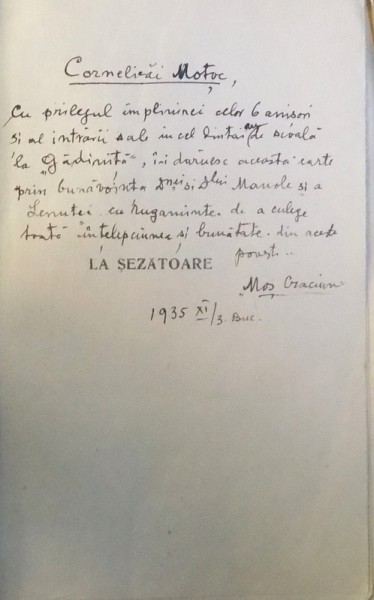 Corneliăi Moţoc,
Cu prilegul împlinirei celor 6 anişori
şi al intrării sale in cel dintâi an de şcoală
la "Gădiniţă", îi dăruesc aceasta carte
prin bunăvoinţa Dnei si Dlui Manole şi a
Lenutei cu rugamintea de a culege
toată înţelepciunea şi bunătatea din aceste
poveşti..
LA ŞEZĂTOARE
"Moş Craciun
1935 XI/3. Buc.